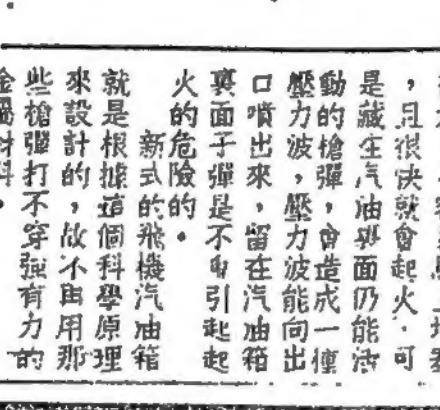 ，且很快就會起火．可
是藏在汽油裏面仍能活
動的槍彈，會造成一種
壓力波，壓力波能向出
口噴出來，留在汽油箱
裏面子彈是不會引起起
火的危險的．
新式的飛機汽油箱
就是根據這個科學原理
來設計的，故不再用那
些槍彈打不穿强有力的
金屬材料．